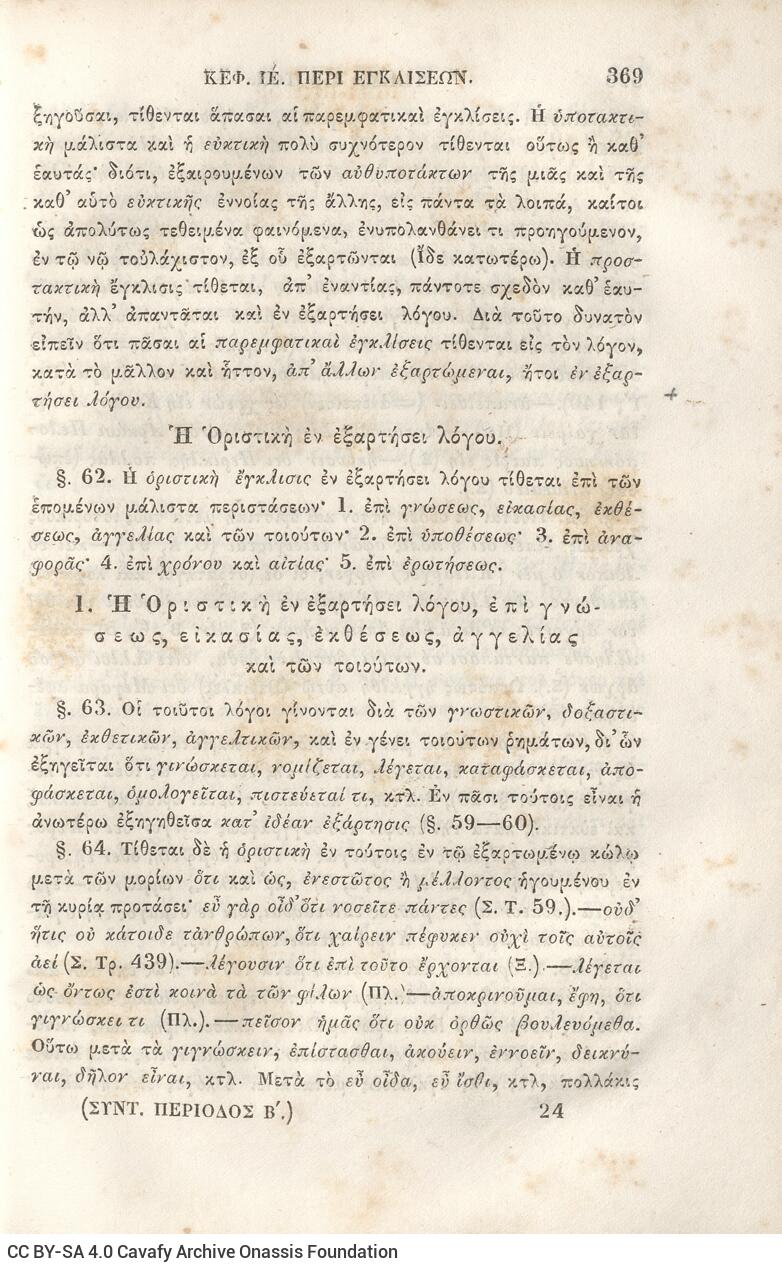 ΚΕΦ. ΙΕ. ΠΕΡΙ ΕΓΚΛΙΣΕΩΝ. 369
ξηγοῦσαι, τίθενται ἅπασαι αἱ παρεμφατικαὶ ἐγκλίσεις. Ἡ ὑποτακτι-
κὴ μάλιστα καὶ ἡ εὐκτικὴ πολὺ συχνότερον τίθενται οὕτως ἢ καθ’
ἑαυτάς· διότι, ἐξαιρουμένων τῶν αὐθυποτάκτων τῆς μιᾶς καὶ τῆς
καθ’ αὑτὸ εὐκτικῆς ἐννοίας τῆς ἄλλης, εἰς πάντα τὰ λοιπά, καίτοι
ὡς ἀπολύτως τεθειμένα φαινόμενα, ἐνυπολανθάνει τι προηγούμενον,
ἐν τῷ νῷ τοὐλάχιστον, ἐξ οὗ ἐξαρτῶνται (Ἴδε κατωτέρω). Ἡ προσ-
τακτικὴ ἔγκλισις τίθεται, ἀπ’ ἐναντίας, πάντοτε σχεδὸν καθ’ ἑαυ-
τήν, ἀλλ’ ἀπαντᾶται καὶ ἐν ἐξαρτήσει λόγου. Διὰ τοῦτο δυνατὸν
εἰπεῖν ὅτι πᾶσαι αἱ παρεμφατικαὶ ἐγκλίσεις τίθενται εἰς τὸν λόγον,
κατὰ τὸ μᾶλλον καὶ ἧττον, ἀπ’ ἄλλων ἐξαρτώμεναι, ἤτοι ἐν ἐξαρ-
τήσει λόγου.
Ἡ Ὁριστικὴ ἐν ἐξαρτήσει λόγου.
§. 62. Ἡ ὁριστικὴ ἔγκλισις ἐν ἐξαρτήσει λόγου τίθεται ἐπὶ τῶν
ἑπομένων μάλιστα περιστάσεων· 1. ἐπὶ γνώσεως, εἰκασίας, ἐκθέ-
σεως, ἀγγελίας καὶ τῶν τοιούτων· 2. ἐπὶ ὑποθέσεως· 3. ἐπὶ ἀνα-
φορᾶς· 4. ἐπὶ χρόνου καὶ αἰτίας· 5. ἐπὶ ἐρωτήσεως.
1. Ἡ Ὁριστικὴ ἐν ἐξαρτήσει λόγου, ἐπὶ γνώ-
σεως, εἰκασίας, ἐκθέσεως, ἀγγελίας
καὶ τῶν τοιούτων.
§. 63. Οἱ τοιοῦτοι λόγοι γίνονται διὰ τῶν γνωστικῶν, δοξαστι-
κῶν, ἐκθετικῶν, ἀγγελτικῶν, καὶ ἐν γένει τοιούτων ῥημάτων, δι’ ὧν
ἐξηγεῖται ὅτι γινώσκεται, νομίζεται, λέγεται, καταφάσκεται, ἀπο-
φάσκεται, ὁμολογεῖται, πιστεύεταί τι, κτλ. Ἐν πᾶσι τούτοις εἶναι ἡ
ἀνωτέρω ἐξηγηθεῖσα κατ’ ἰδέαν ἐξάρτησις (§. 59—60).
§. 64. Τίθεται δὲ ἡ ὁριστικὴ ἐν τούτοις ἐν τῷ ἐξαρτωμένῳ κώλῳ
μετὰ τῶν μορίων ὅτι καὶ ὡς, ἐνεστῶτος ἢ μέλλοντος ἡγουμένου ἐν
τῇ κυρίᾳ προτάσει· εὖ γὰρ οἶδ’ ὅτι νοσεῖτε πάντες (Σ. Τ. 59.).—οὐδ’
ἥτις οὐ κάτοιδε τἀνθρώπων, ὅτι χαίρειν πέφυκεν οὐχὶ τοῖς αὐτοῖς
ἀεί (Σ. Τρ. 439).—λέγουσιν ὅτι ἐπὶ τοῦτο ἔρχονται (Ξ.).—λέγεται
ὡς ὄντως ἐστὶ κοινὰ τὰ τῶν φίλων (Πλ.)—ἀποκρινοῦμαι, ἔφη, ὅτι
γιγνώσκει τι (Πλ.).—πεῖσον ἡμᾶς ὅτι οὐκ ὀρθῶς βουλευόμεθα.
Οὕτω μετὰ τὰ γιγνώσκειν, ἐπίστασθαι, ἀκούειν, ἐννοεῖν, δεικνύ-
ναι, δῆλον εἶναι, κτλ. Μετὰ τὸ εὖ οἶδα, εὖ ἴσθι, κτλ, πολλάκις
(ΣΥΝΤ. ΠΕΡΙΟΔΟΣ Β΄.) 24
CC BY-SA 4.0 Cavafy Archive Onassis Foundation